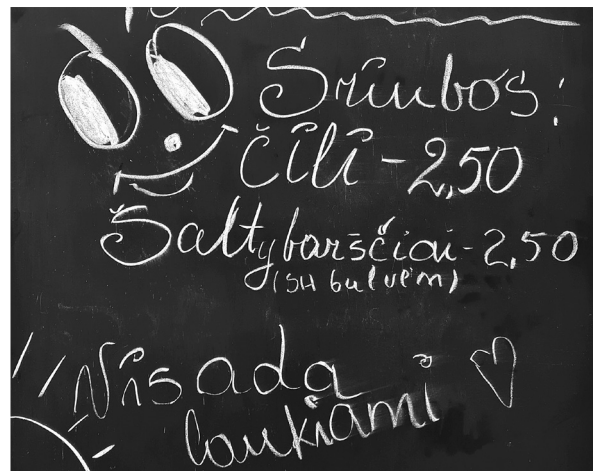 Sriubos:
Čili - 2,50
Šaltybarščiai - 2,50
(su bulvėm)
Visada
laukiami